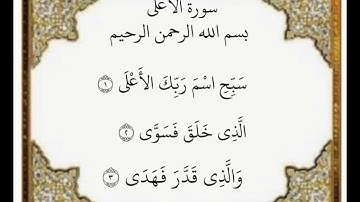 سورة الأعلى
بسم الله الرحمن الرحيم
سَبِّحِ اسْمَ رَبِّكَ الأَعْلَى ١
الَّذِي خَلَقَ فَسَوَّى ٢
وَالَّذِي قَدَّرَ فَهَدَى ٣